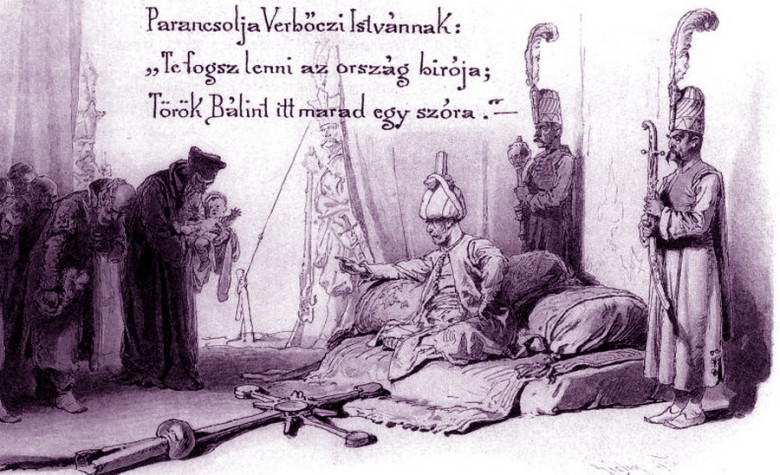 Parancsolja Verbőczi Istvánnak:
„Te fogsz lenni az ország birója;
Török Bálint itt marad egy szóra."—